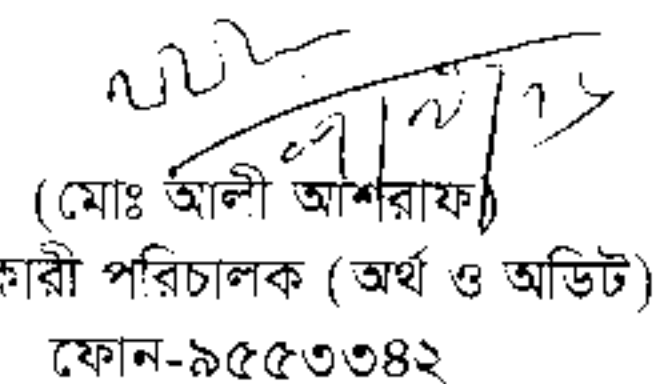 (মোঃ আলী আশরাফ)
কারী পরিচালক (অর্থ ও অডিট)
ফোন-৯৫৫৩৩৪২